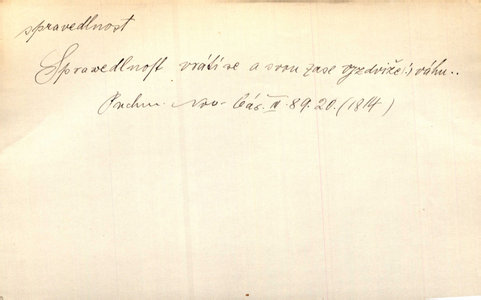 spravedlnost
Sprawedlnost vrátí se a svou zase vyzdviže(:) váhu..
Puchm. Nov. Bás. IV. 89. 20. (1814)